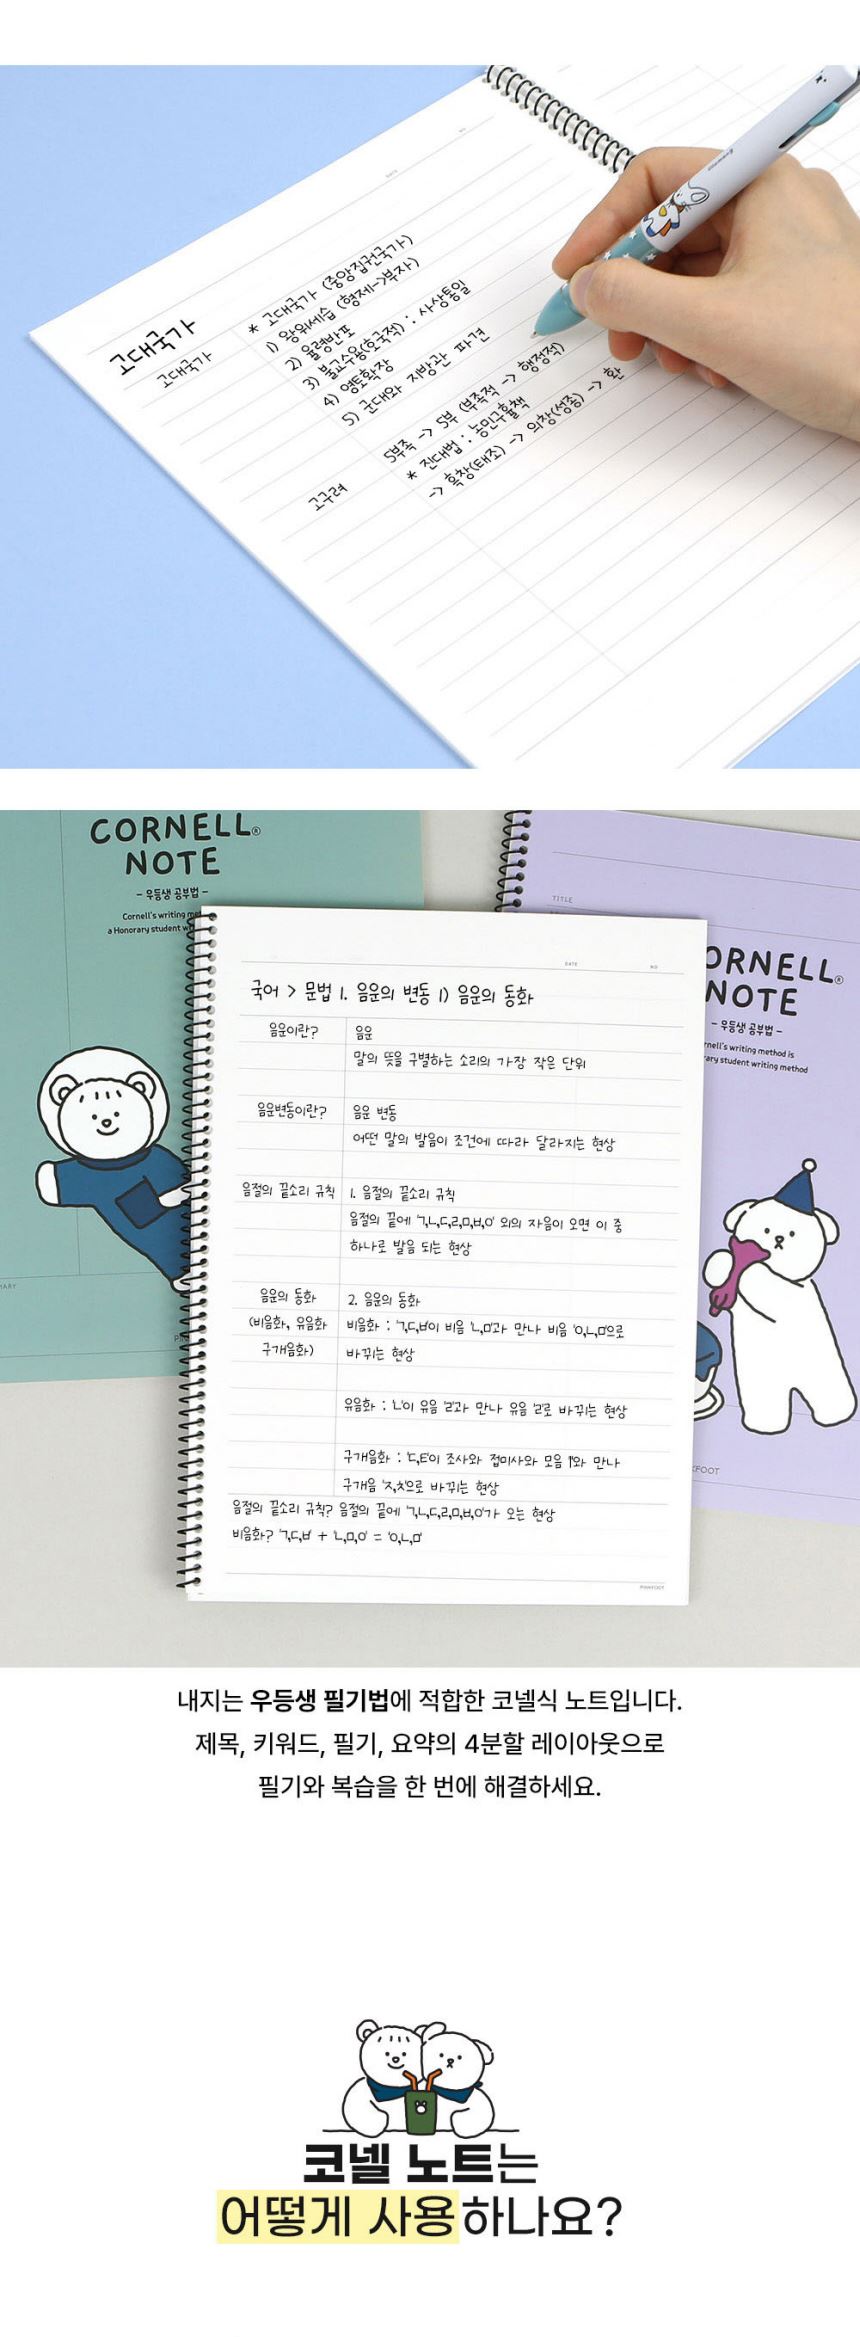 DATE
NO
고대국가
고대국가
* 고대국가 (중앙집권국가)
1) 왕위세습 (형제->부자)
2) 율령반포
3) 불교수용(호국적) : 사상통일
4) 영토확장
5) 군대와 지방관 파견
고구려
5부족 -> 5부 (부족적 -> 행정적)
* 진대법 : 농민구휼책
-> 흑창(태조) -> 의창(성종) -> 환
CORNELL®
NOTE
- 우등생 공부법 -
Cornell's writing me
a Honorary student wr
MARY
TITLE
ORNELL®
NOTE
- 우등생 공부법 -
rnell's writing method is
rary student writing method
KFOOT
DATE
NO
국어 > 문법 1. 음운의 변동 1) 음운의 동화
음운이란?
음운
말의 뜻을 구별하는 소리의 가장 작은 단위
음운변동이란?
음운 변동
어떤 말의 발음이 조건에 따라 달라지는 현상
음절의 끝소리 규칙
1. 음절의 끝소리 규칙
음절의 끝에 'ㄱ,ㄴ,ㄷ,ㄹ,ㅁ,ㅂ,ㅇ' 외의 자음이 오면 이 중
하나로 발음 되는 현상
음운의 동화
2. 음운의 동화
(비음화, 유음화
비음화 : 'ㄱ,ㄷ,ㅂ'이 비음 'ㄴ,ㅁ'과 만나 비음 'ㅇ,ㄴ,ㅁ'으로
구개음화)
바뀌는 현상
유음화 : 'ㄴ'이 유음 'ㄹ'과 만나 유음 'ㄹ'로 바뀌는 현상
구개음화 : 'ㄷ,ㅌ'이 조사와 접미사와 모음 'ㅣ'와 만나
구개음 'ㅈ,ㅊ'으로 바뀌는 현상
음절의 끝소리 규칙? 음절의 끝에 'ㄱ,ㄴ,ㄷ,ㄹ,ㅁ,ㅂ,ㅇ'가 오는 현상
비음화? 'ㄱ,ㄷ,ㅂ' + 'ㄴ,ㅁ,ㅇ' = 'ㅇ,ㄴ,ㅁ'
PINKFOOT
내지는 우등생 필기법에 적합한 코넬식 노트입니다.
제목, 키워드, 필기, 요약의 4분할 레이아웃으로
필기와 복습을 한 번에 해결하세요.
코넬 노트는
어떻게 사용하나요?